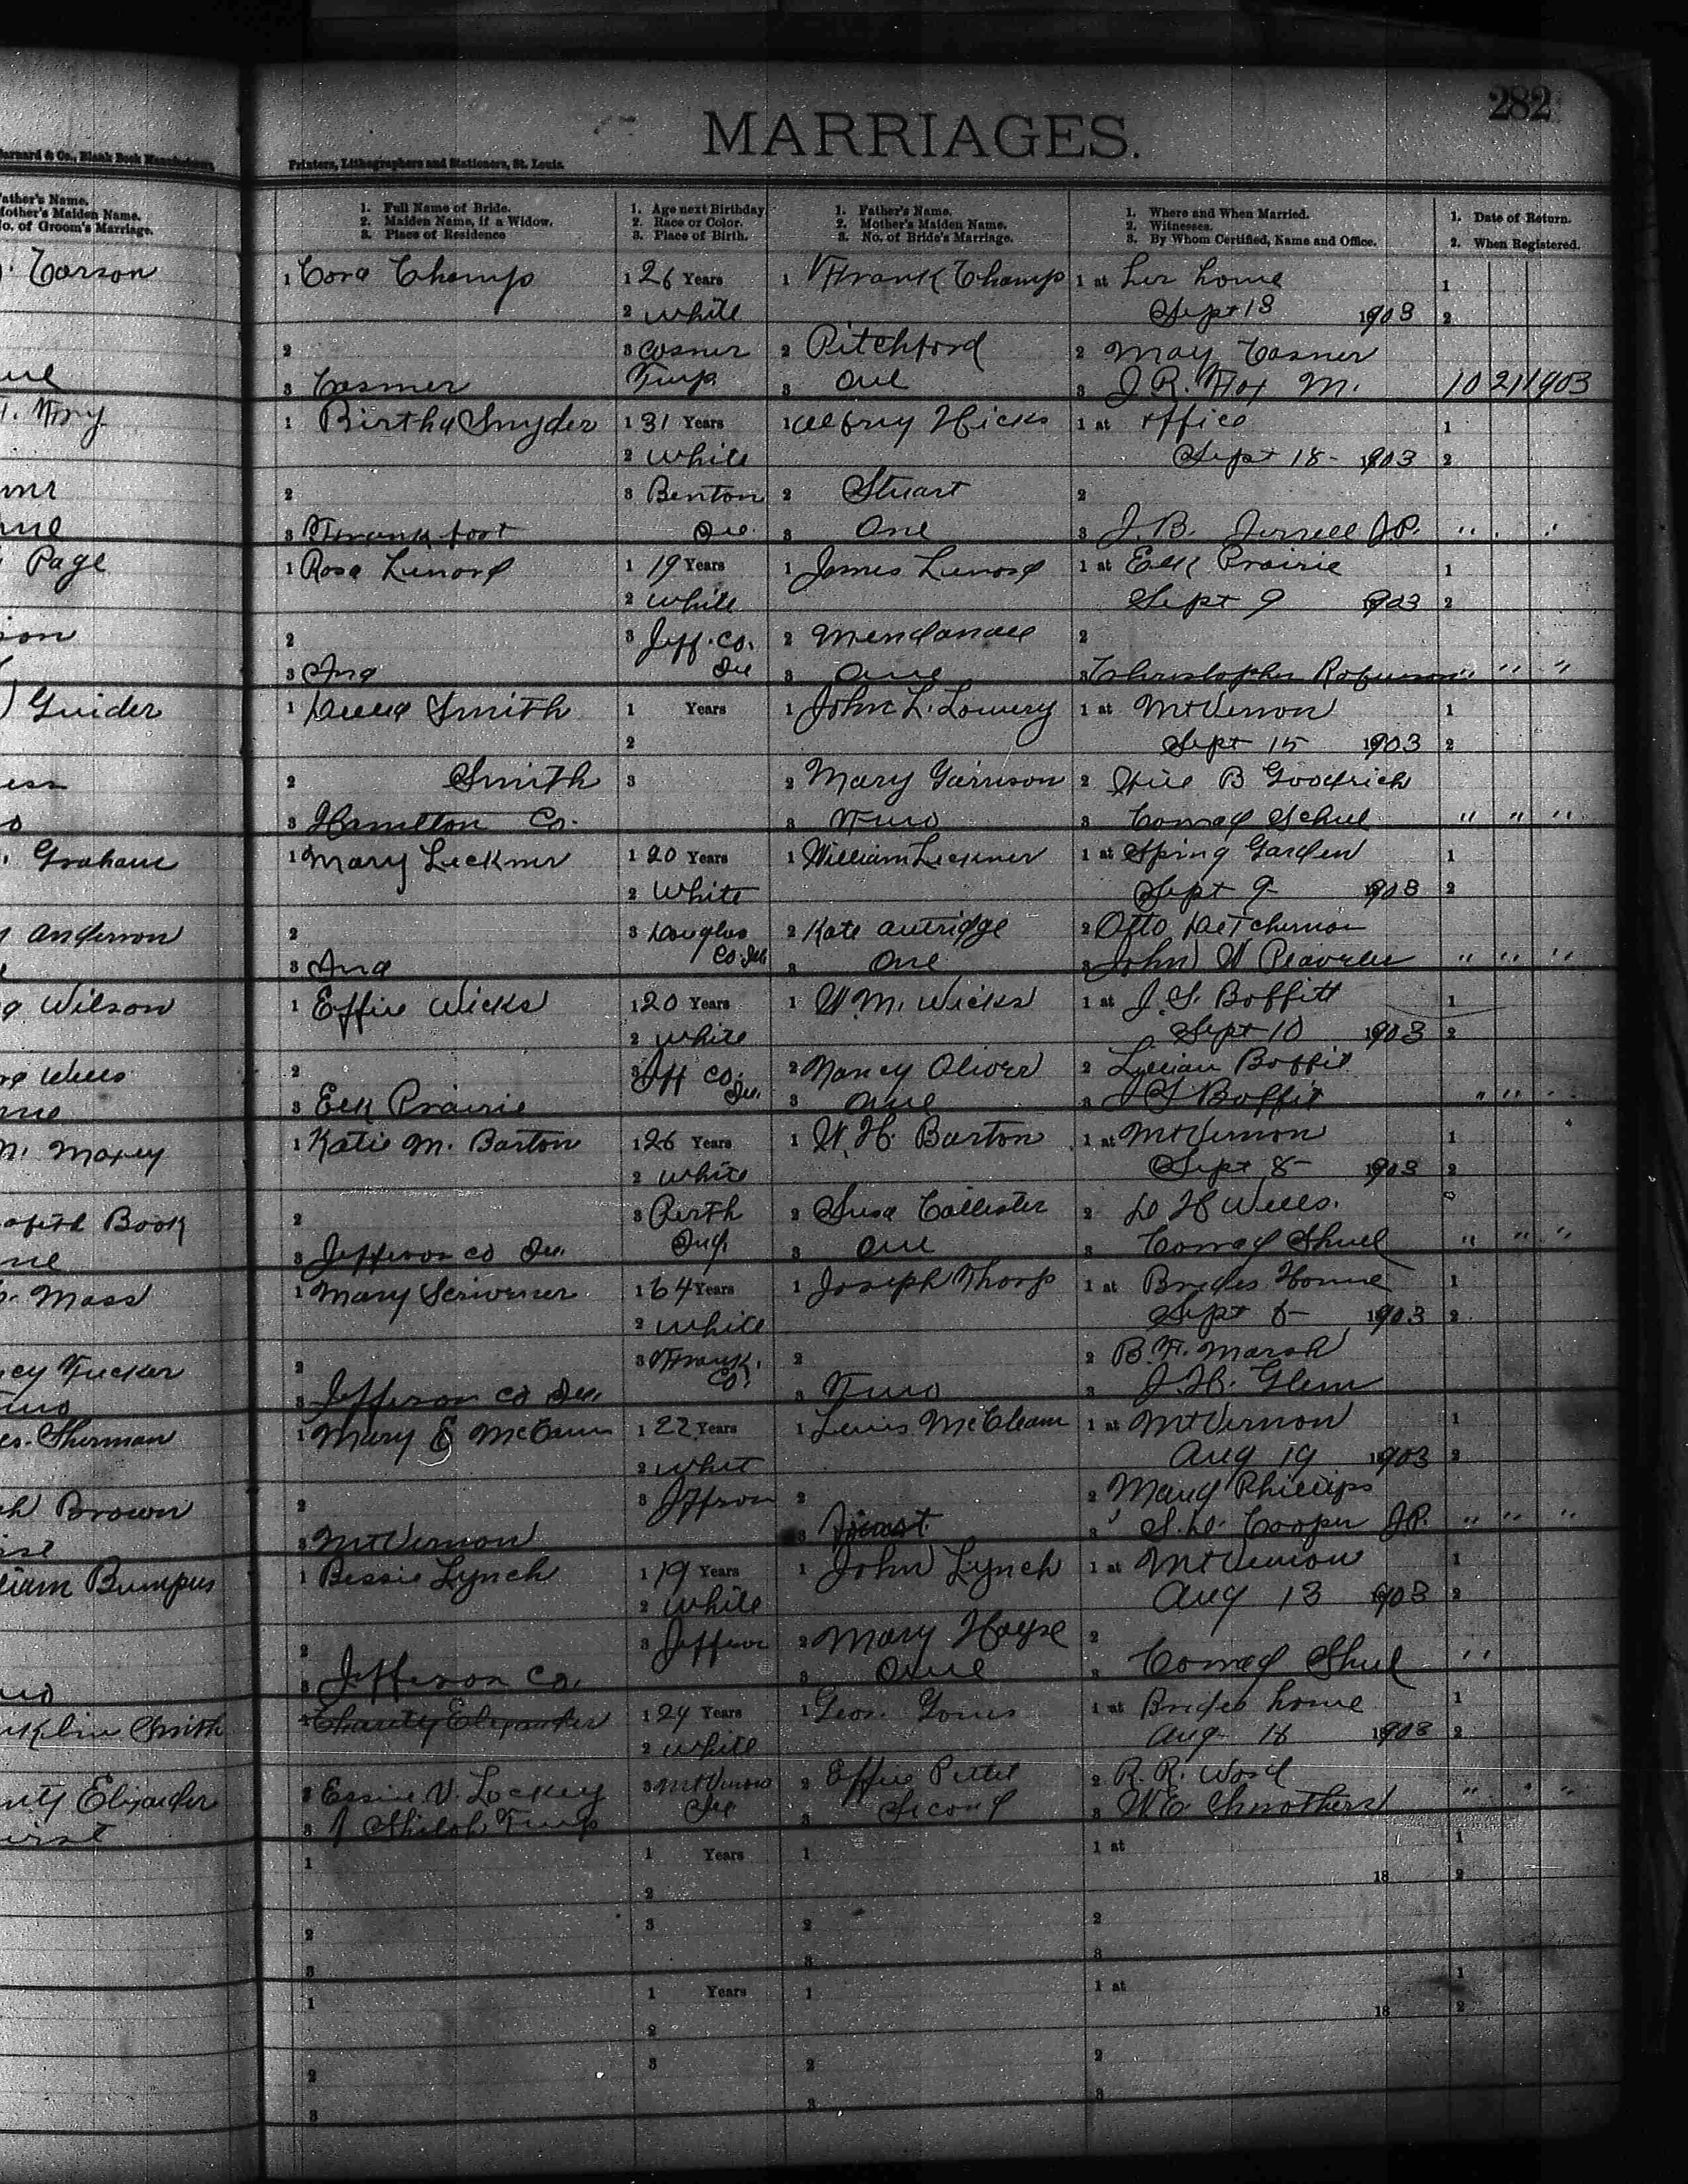 282
MARRIAGES.
Barnard & Co., Blank Book Manufacturers,
Printers, Lithographers and Stationers, St. Louis.
Father's Name.
Mother's Maiden Name.
No. of Groom's Marriage.
1. Full Name of Bride.
2. Maiden Name, if a Widow.
3. Place of Residence
1. Age next Birthday
2. Race or Color.
3. Place of Birth.
1. Father's Name.
2. Mother's Maiden Name.
3. No. of Bride's Marriage.
1. Where and When Married.
2. Witnesses.
3. By Whom Certified, Name and Office.
1. Date of Return.
2. When Registered.
Carson
1 Cora Champ 1 26 Years 1 Frank Champ 1 at her home 1
2 White Sept 13 1903 2
2 3 Casner 2 Pitchford 2 May Casner
3 Casner Twp. 3 One 3 J. R. Fox M. 10 21 1903
Fry
1 Birtha Snyder 1 31 Years 1 Hicks 1 at office 1
2 White Sept 18 - 1903 2
2 3 Benton 2 Stuart 2
3 Frankfort Ill. 3 One 3 J. B. Jerrell J.P. " " "
Page
1 Rosa Lenord 1 19 Years 1 James Lenord 1 at Elk Prairie 1
2 White Sept 9 1903 2
2 3 Jeff. Co. 2 Mendanall 2
3 Ina Ill 3 One 3 Christopher Robinson " " "
Guider
1 Smith 1 Years 1 John L. Lowery 1 at Mt Vernon 1
2 Sept 15 1903 2
2 Smith 3 2 Mary Garrison 2 B Goodrich
3 Hamilton Co. 3 Two 3 Conrad Schul " " "
Graham
1 Mary Leckner 1 20 Years 1 William Leckner 1 at Spring Garden 1
2 White Sept 9 - 1903 2
Anderson
2 3 Douglas 2 Kate Autridge 2 Otto
3 Ina Co. Ill. 3 One 3 John W
Wilson
1 Effie Wicks 1 20 Years 1 W. M. Wicks 1 at J. S. Boffitt 1
2 White Sept 10 1903 2
Wells
2 3 Jeff Co. 2 Nancy Oliver 2 Lillian Boffit
3 Elk Prairie Ill. 3 One 3 J S Boffit " " "
Maxey
1 Katie M. Barton 1 26 Years 1 W. H. Barton 1 at Mt Vernon 1
2 White Sept 8 - 1903 2
Book
2 3 Perth 2 Susa Callester 2 D H Wells.
3 Jefferson co Ill. Ind. 3 One 3 Conrad Shul " " "
Mass
1 Mary Scrivener 1 64 Years 1 Joseph Thorp 1 at Brides Home 1
2 White Sept 6 - 1903 2
Tucker
2 3 Frank. Co. 2 2 B. F. Marsh
3 Jefferson co Ill. 3 Two 3 J. H. Glenn
Sherman
1 Mary E McClain 1 22 Years 1 Lewis McCleam 1 at Mt Vernon 1
2 Whit Aug 19 1903 2
Brown
2 3 Jffron 2 2 Maud Phillips
3 Mt Vernon 3 First 3 S. D. Cooper J.P. " " "
William Bumpus
1 Bessie Lynch 1 19 Years 1 John Lynch 1 at Mt Vernon 1
2 White Aug 13 1903 2
2 3 Jeffrson 2 Mary Hayse 2
3 Jefferson Co. 3 One 3 Conrad Shul " "
Smith
1 Charity Elixander 1 24 Years 1 Geo. Goins 1 at Brides home 1
2 White Aug 18 1903 2
Elixander
2 Essie V. Lockey 3 Mt Vernon 2 Effie Pettet 2 R. R. Wood
3 Shiloh Twp Ill 3 Second 3 W E Smothers " " "
1 1 Years 1 1 at 1
2 18 2
2 3 2 2
3 3 3
1 1 Years 1 1 at 1
2 18 2
2 3 2 2
3 3 3